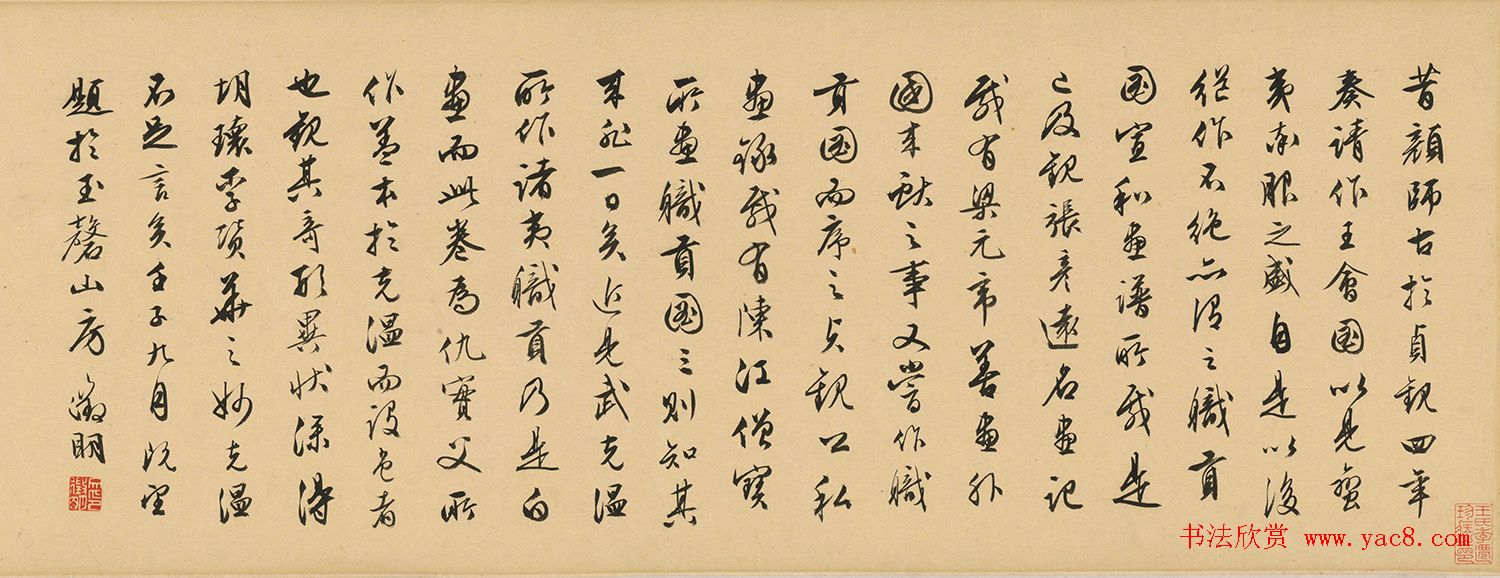 昔顏師古於貞觀四年
奏請作王會圖以見蠻
夷率服之盛自是以後
繼作不絕亦謂之職貢
圖宣和畫譜所載是
已及觀張彥遠名畫記
載有梁元帝善畫外
國來獻之事又嘗作職
貢圖而序之貞觀公私
畫錄載有陳江僧寶
所畫職貢圖三則知其
來非一日矣近見武克溫
所作諸夷職貢乃是白
畫而此卷為仇實父所
作蓋本於克溫而設色者
也觀其奇形異狀深得
胡瓌李贊華之妙克溫
不足言矣壬子九月既望
題於玉磬山房 徵明
书法欣赏 www.yac8.com